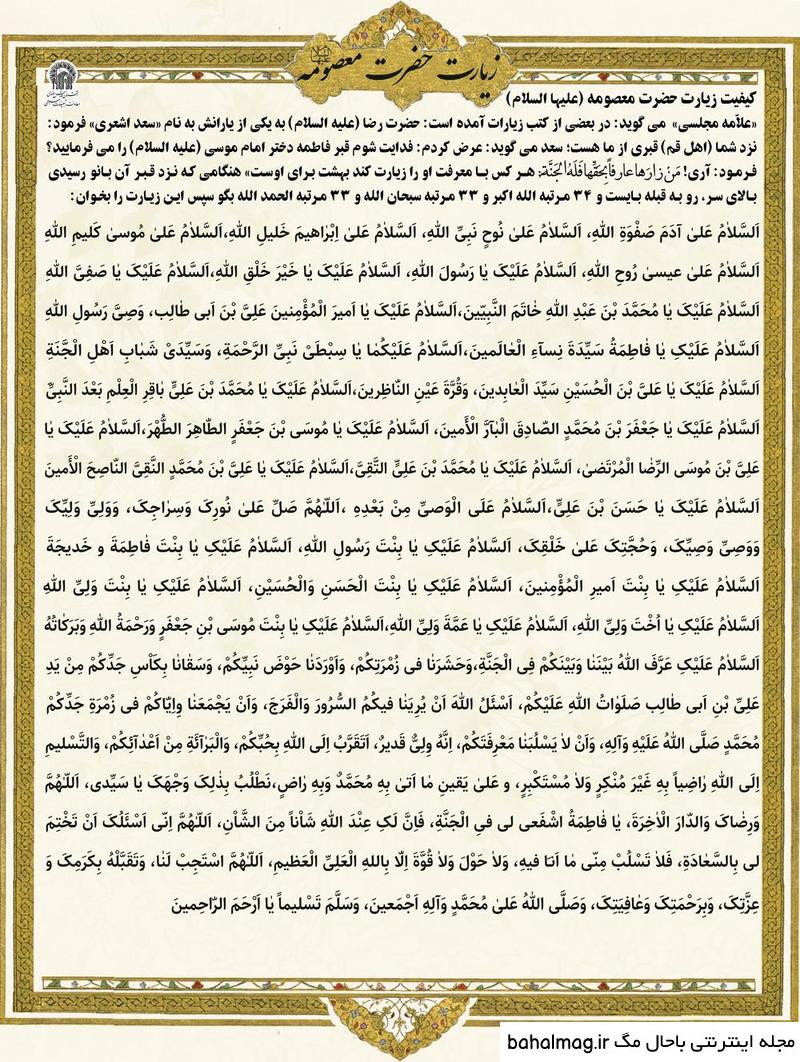 زیارت حضرت معصومه
کیفیت زیارت حضرت معصومه (علیها السلام)
«علاّمه مجلسی» می گوید: در بعضی از کتب زیارات آمده است: حضرت رضا (علیه السلام) به یکی از یارانش به نام «سعد اشعری» فرمود:
نزد شما (اهل قم) قبری از ما هست؛ سعد می گوید: عرض کردم: فدایت شوم قبر فاطمه دختر امام موسی (علیه السلام) را می فرمایید؟
فرمود: آری! مَنْ زارَها عارِفاً بِحَقِّها فَلَهُ الجَنَّة؛ هر کس با معرفت او را زیارت کند بهشت برای اوست» هنگامی که نزد قبر آن بانو رسیدی
بالای سر، رو به قبله بایست و ۳۴ مرتبه الله اکبر و ۳۳ مرتبه سبحان الله و ۳۳ مرتبه الحمد الله بگو سپس این زیارت را بخوان:
اَلسَّلامُ عَلىٰ آدَمَ صَفْوَةِ اللهِ، اَلسَّلامُ عَلىٰ نُوحٍ نَبِىِّ اللهِ، اَلسَّلامُ عَلىٰ اِبْراهیمَ خَلیلِ اللهِ،اَلسَّلامُ عَلىٰ مُوسىٰ کَلیمِ اللهِ
اَلسَّلامُ عَلىٰ عیسىٰ رُوحِ اللهِ، اَلسَّلامُ عَلَیْکَ یا رَسُولَ اللهِ، اَلسَّلامُ عَلَیْکَ یا خَیْرَ خَلْقِ اللهِ،اَلسَّلامُ عَلَیْکَ یا صَفِىَّ اللهِ
اَلسَّلامُ عَلَیْکَ یا مُحَمَّدَ بْنَ عَبْدِ اللهِ خاتَمَ النَّبِیّینَ،اَلسَّلامُ عَلَیْکَ یا اَمیرَ الْمُؤْمِنینَ عَلِىَّ بْنَ اَبى طالِبٍ، وَصِىَّ رَسُولِ اللهِ
اَلسَّلامُ عَلَیْکِ یا فاطِمَةُ سَیِّدَةَ نِساءِ الْعالَمینَ،اَلسَّلامُ عَلَیْکُما یا سِبْطَىْ نَبِىِّ الرَّحْمَةِ، وَسَیِّدَىْ شَبابِ اَهْلِ الْجَنَّةِ
اَلسَّلامُ عَلَیْکَ یا عَلىَّ بْنَ الْحُسَیْنِ سَیِّدَ الْعابِدینَ، وَقُرَّةَ عَیْنِ النّاظِرینَ،اَلسَّلامُ عَلَیْکَ یا مُحَمَّدَ بْنَ عَلِىٍّ باقِرَ الْعِلْمِ بَعْدَ النَّبِىِّ
اَلسَّلامُ عَلَیْکَ یا جَعْفَرَ بْنَ مُحَمَّدٍ الصّادِقَ الْبآرَّ الْأَمینَ، اَلسَّلامُ عَلَیْکَ یا مُوسَى بْنَ جَعْفَرٍ الطّاهِرَ الطُّهْرَ،اَلسَّلامُ عَلَیْکَ یا
عَلِىَّ بْنَ مُوسَى الرِّضَا الْمُرْتَضىٰ، اَلسَّلامُ عَلَیْکَ یا مُحَمَّدَ بْنَ عَلِىٍّ التَّقِىَّ،اَلسَّلامُ عَلَیْکَ یا عَلِىَّ بْنَ مُحَمَّدٍ النَّقِىَّ النّاصِحَ الْأَمینَ
اَلسَّلامُ عَلَیْکَ یا حَسَنَ بْنَ عَلِىٍّ،اَلسَّلامُ عَلَى الْوَصِىِّ مِنْ بَعْدِهِ ،اَللّهُمَّ صَلِّ عَلىٰ نُورِکَ وَسِراجِکَ، وَوَلِىِّ وَلِیِّکَ
وَوَصِىِّ وَصِیِّکَ، وَحُجَّتِکَ عَلىٰ خَلْقِکَ، اَلسَّلامُ عَلَیْکِ یا بِنْتَ رَسُولِ اللهِ، اَلسَّلامُ عَلَیْکِ یا بِنْتَ فاطِمَةَ و خَدیجَةَ
اَلسَّلامُ عَلَیْکِ یا بِنْتَ اَمیرِ الْمُؤْمِنینَ، اَلسَّلامُ عَلَیْکِ یا بِنْتَ الْحَسَنِ وَالْحُسَیْنِ، اَلسَّلامُ عَلَیْکِ یا بِنْتَ وَلِىِّ اللهِ
اَلسَّلامُ عَلَیْکِ یا اُخْتَ وَلِىِّ اللهِ، اَلسَّلامُ عَلَیْکِ یا عَمَّةَ وَلِىِّ اللهِ،اَلسَّلامُ عَلَیْکِ یا بِنْتَ مُوسَى بْنِ جَعْفَرٍ وَرَحْمَةُ اللهِ وَبَرَکاتُهُ
اَلسَّلامُ عَلَیْکِ عَرَّفَ اللهُ بَیْنَنا وَبَیْنَکُمْ فِى الْجَنَّةِ،وَحَشَرَنا فى زُمْرَتِکُمْ، وَاَوْرَدَنا حَوْضَ نَبِیِّکُمْ، وَسَقانا بِکَأْسِ جَدِّکُمْ مِنْ یَدِ
عَلِىِّ بْنِ اَبى طالِبٍ صَلَواتُ اللهِ عَلَیْکُمْ، اَسْئَلُ اللهَ اَنْ یُرِیَنا فیکُمُ السُّرُورَ وَالْفَرَجَ، وَاَنْ یَجْمَعَنا وَاِیّاکُمْ فى زُمْرَةِ جَدِّکُمْ
مُحَمَّدٍ صَلَّى اللهُ عَلَیْهِ وَآلِهِ، وَاَنْ لا یَسْلُبَنا مَعْرِفَتَکُمْ، اِنَّهُ وَلِىٌّ قَدیرٌ، اَتَقَرَّبُ اِلَى اللهِ بِحُبِّکُمْ، وَالْبَرآئَةِ مِنْ اَعْدآئِکُمْ، وَالتَّسْلیمِ
اِلَى اللهِ راضِیاً بِهِ غَیْرَ مُنْکِرٍ وَلا مُسْتَکْبِرٍ، و عَلىٰ یَقینِ ما اَتىٰ بِهِ مُحَمَّدٌ وَبِهِ راضٍ،نَطْلُبُ بِذٰلِکَ وَجْهَکَ یا سَیِّدى، اَللّهُمَّ
وَرِضاکَ وَالدّارَ الْآخِرَةَ، یا فاطِمَةُ اشْفَعى لى فِى الْجَنَّةِ، فَاِنَّ لَکِ عِنْدَ اللهِ شَأْناً مِنَ الشَّأْنِ، اَللّهُمَّ اِنّى اَسْئَلُکَ اَنْ تَخْتِمَ
لى بِالسَّعادَةِ، فَلا تَسْلُبْ مِنّى ما اَنَا فیهِ، وَلا حَوْلَ وَلا قُوَّةَ اِلّا بِاللهِ الْعَلِىِّ الْعَظیمِ، اَللّهُمَّ اسْتَجِبْ لَنا، وَتَقَبَّلْهُ بِکَرَمِکَ وَ
عِزَّتِکَ، وَبِرَحْمَتِکَ وَعافِیَتِکَ، وَصَلَّى اللهُ عَلىٰ مُحَمَّدٍ وَآلِهِ اَجْمَعینَ، وَسَلَّمَ تَسْلیماً یا اَرْحَمَ الرّاحِمینَ
مجله اینترنتی باحال مگ bahalmag.ir